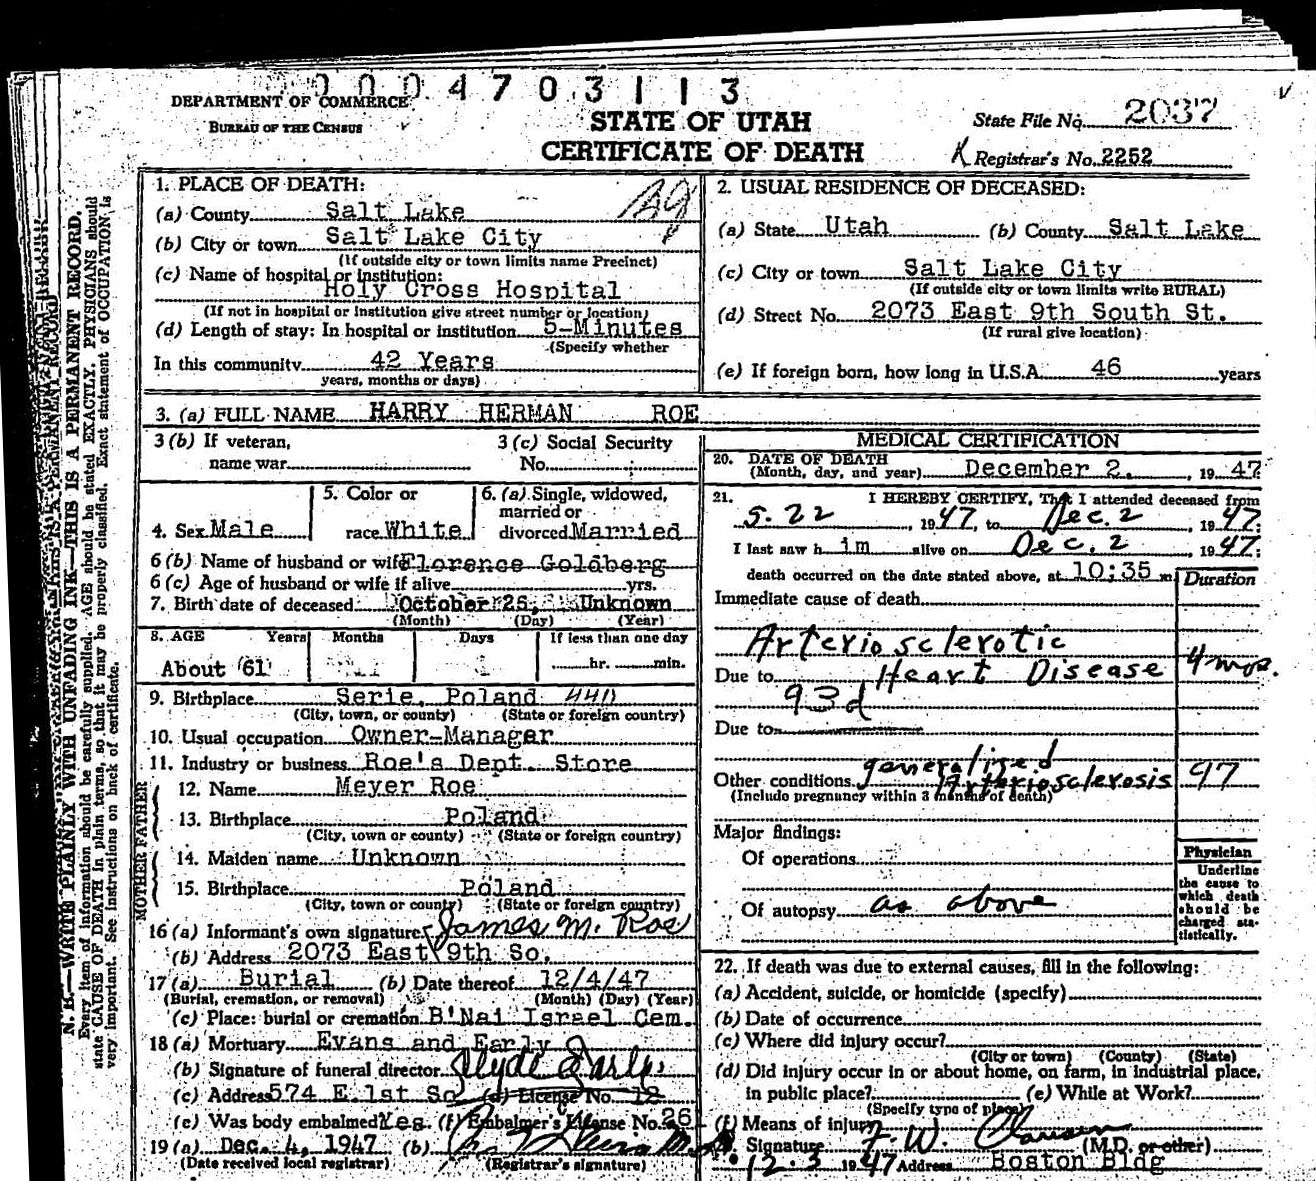 0004703113
DEPARTMENT OF COMMERCE
BUREAU OF THE CENSUS
STATE OF UTAH
CERTIFICATE OF DEATH
State File No. 2037
Registrar's No. 2252
N. B.—WRITE PLAINLY WITH UNFADING INK—THIS IS A PERMANENT RECORD.
Every item of information should be carefully supplied. AGE should be stated EXACTLY. PHYSICIANS should
state CAUSE OF DEATH in plain terms, so that it may be properly classified. Exact statement of OCCUPATION is
very important. See instructions on back of certificate.
1. PLACE OF DEATH:
(a) County Salt Lake
(b) City or town Salt Lake City
(If outside city or town limits name Precinct)
(c) Name of hospital or institution:
Holy Cross Hospital
(If not in hospital or institution give street number or location)
(d) Length of stay: In hospital or institution 5-Minutes
(Specify whether
In this community 42 Years
years, months or days)
2. USUAL RESIDENCE OF DECEASED:
(a) State Utah (b) County Salt Lake
(c) City or town Salt Lake City
(If outside city or town limits write RURAL)
(d) Street No. 2073 East 9th South St.
(If rural give location)
(e) If foreign born, how long in U.S.A. 46 years
3. (a) FULL NAME HARRY HERMAN ROE
3 (b) If veteran,
name war
3 (c) Social Security
No.
4. Sex Male
5. Color or
race White
6. (a) Single, widowed,
married or
divorced Married
6 (b) Name of husband or wife Florence Goldberg
6 (c) Age of husband or wife if alive yrs.
7. Birth date of deceased October 25, Unknown
(Month) (Day) (Year)
8. AGE Years Months Days If less than one day
About 61 hr. min.
9. Birthplace Serie, Poland 440
(City, town, or county) (State or foreign country)
10. Usual occupation Owner-Manager
11. Industry or business Roe's Dept. Store
FATHER
12. Name Meyer Roe
13. Birthplace Poland
(City, town or county) (State or foreign country)
MOTHER
14. Maiden name Unknown
15. Birthplace Poland
(City, town or county) (State or foreign country)
16 (a) Informant's own signature James M. Roe
(b) Address 2073 East 9th So.
17 (a) Burial (b) Date thereof 12/4/47
(Burial, cremation, or removal) (Month) (Day) (Year)
(c) Place: burial or cremation B'Nai Israel Cem.
18 (a) Mortuary Evans and Early
(b) Signature of funeral director Clyde Early
(c) Address 574 E.1st So (d) License No. 12
(e) Was body embalmed Yes. (f) Embalmer's License No. 26
19 (a) Dec. 4, 1947 (b)
(Date received local registrar) (Registrar's signature)
MEDICAL CERTIFICATION
20. DATE OF DEATH
(Month, day, and year) December 2, 1947
21. I HEREBY CERTIFY, That I attended deceased from
5.22, 1947, to Dec. 2, 1947;
I last saw him alive on Dec. 2, 1947;
death occurred on the date stated above, at 10:35 m
Duration
Immediate cause of death
Arteriosclerotic
Due to Heart Disease 4 mos.
93d
Due to
generalized
Other conditions Arteriosclerosis 97
(Include pregnancy within 3 months of death)
Major findings:
Of operations
Of autopsy as above
Physician
Underline
the cause to
which death
should be
charged sta-
tistically.
22. If death was due to external causes, fill in the following:
(a) Accident, suicide, or homicide (specify)
(b) Date of occurrence
(c) Where did injury occur?
(City or town) (County) (State)
(d) Did injury occur in or about home, on farm, in industrial place,
in public place? (e) While at Work?
(Specify type of place)
(f) Means of injury
Signature F. W. Clausen (M.D. or other)
12.3 1947 Address Boston Bldg